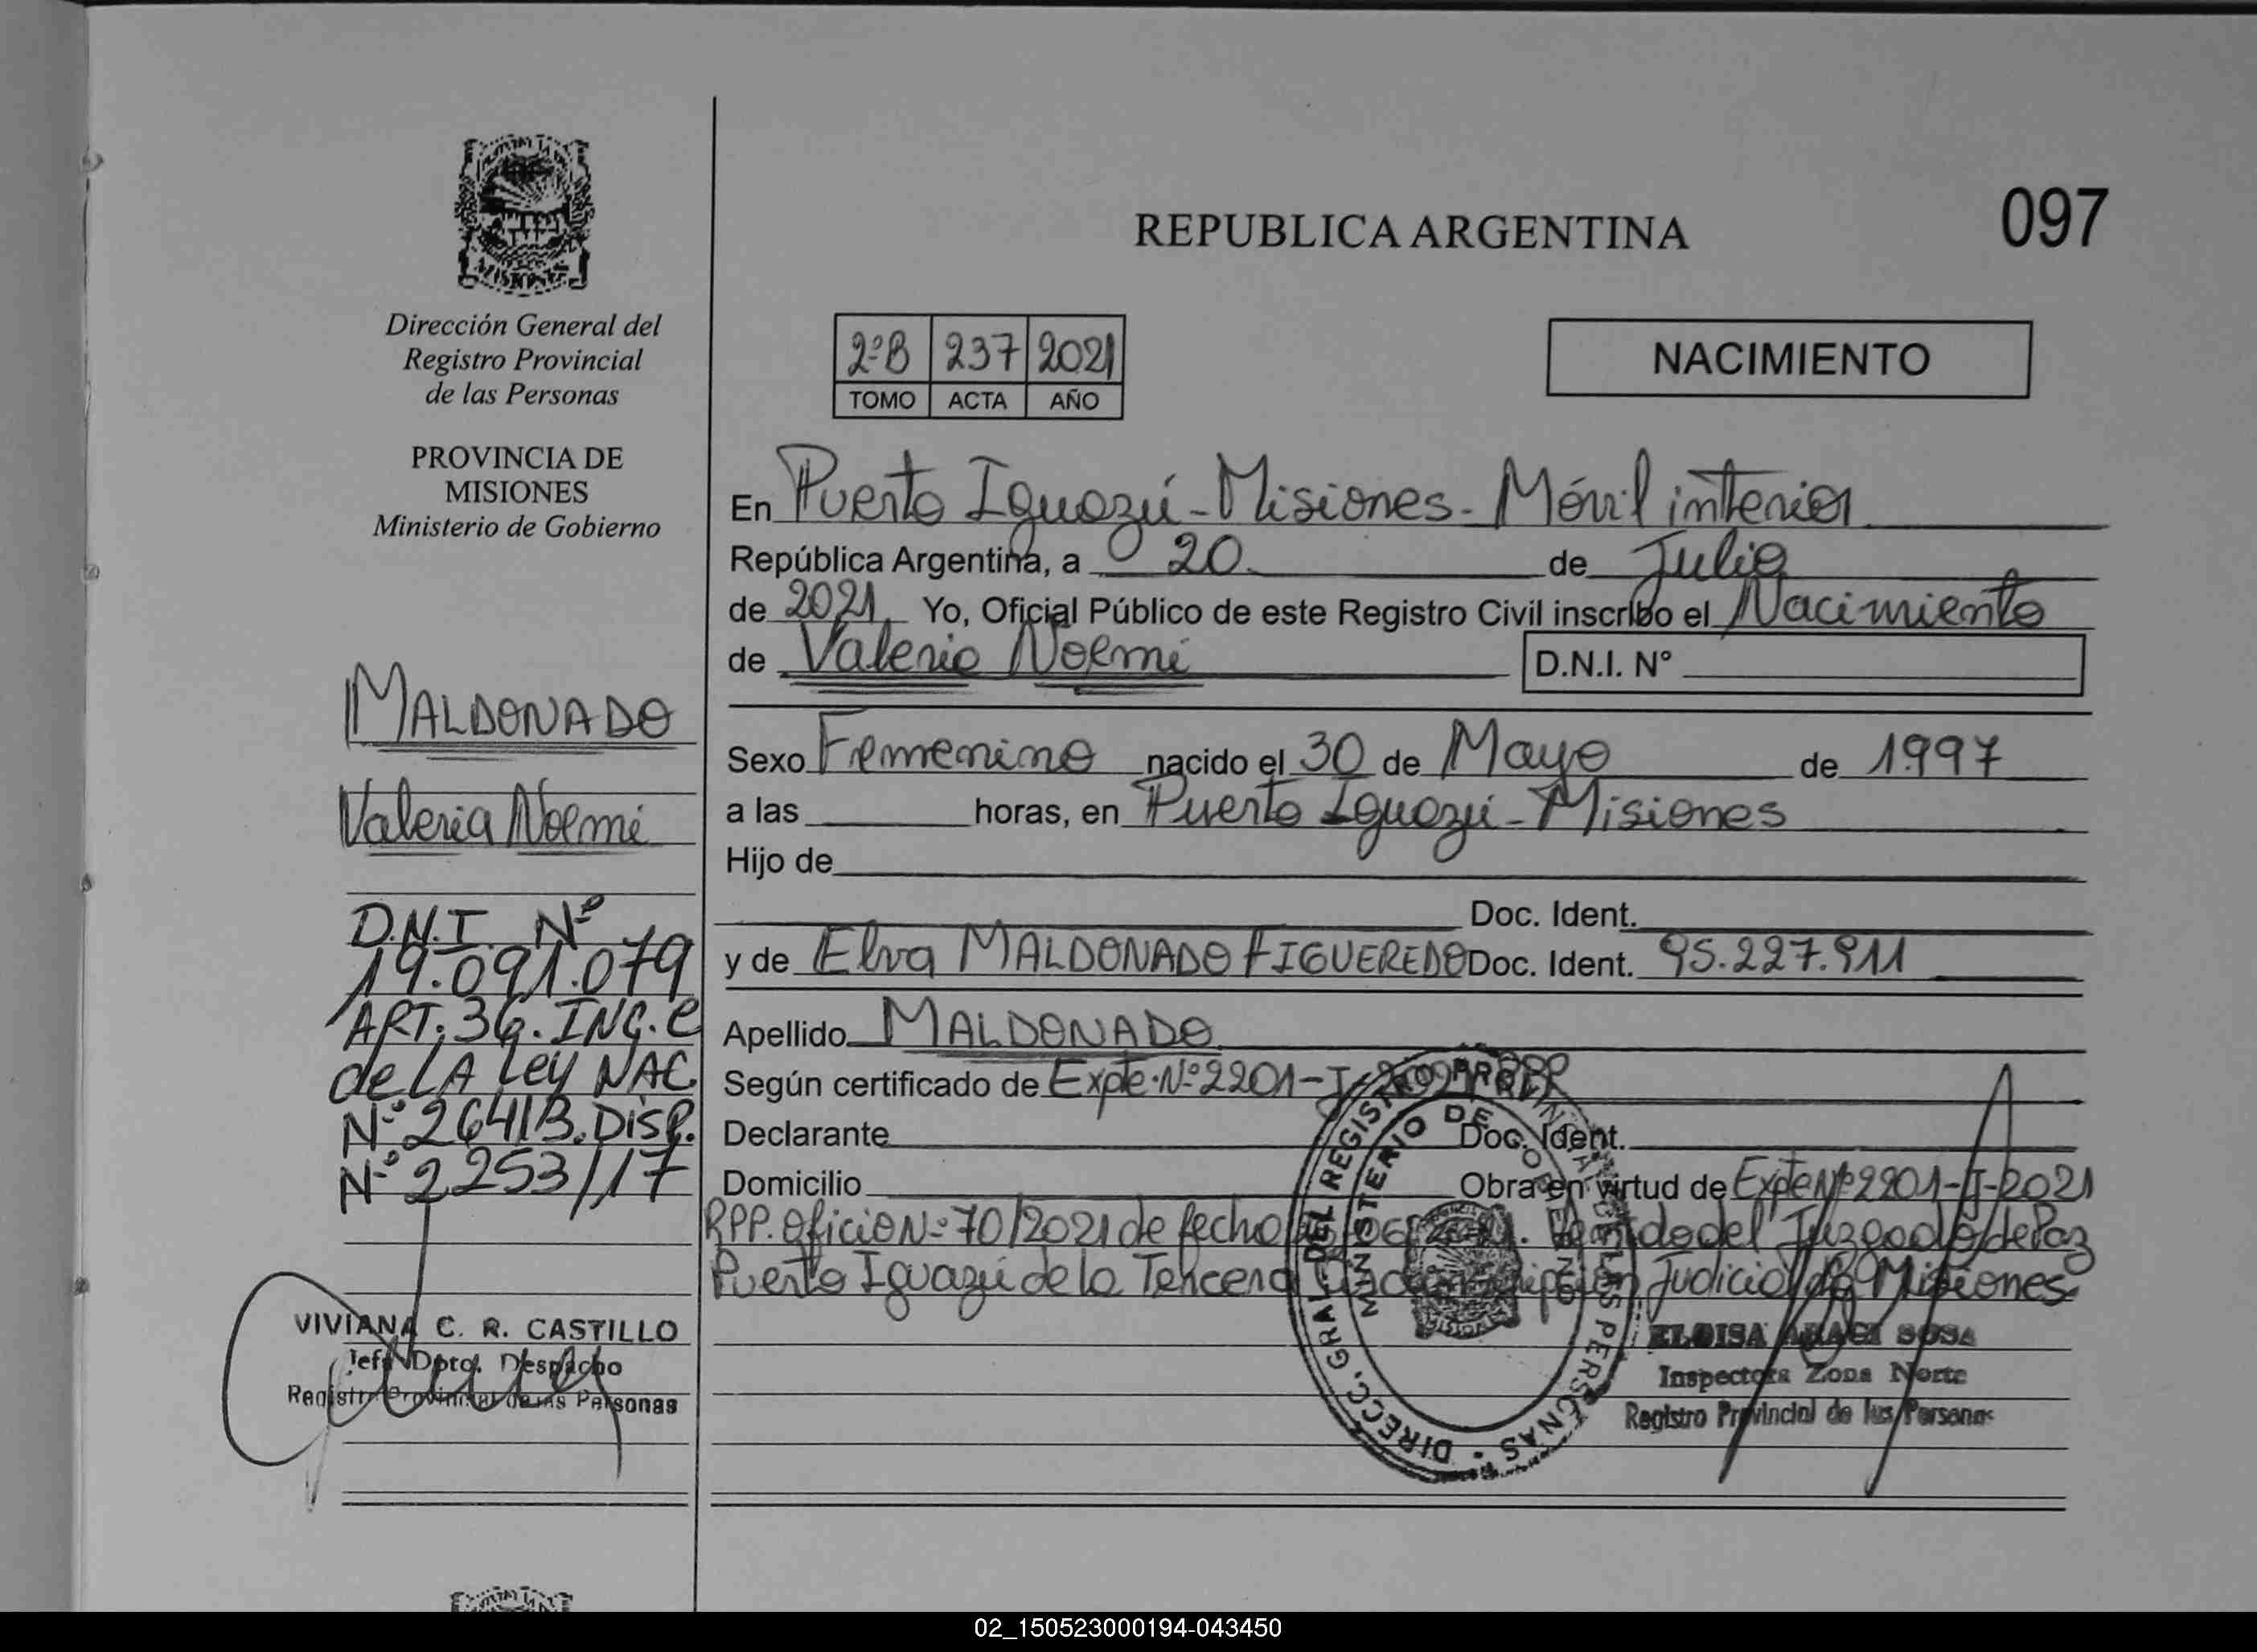 REPUBLICA ARGENTINA
097
Dirección General del
Registro Provincial
de las Personas
PROVINCIA DE
MISIONES
Ministerio de Gobierno
2ºB 237 2021
TOMO ACTA AÑO
NACIMIENTO
En Puerto Iguazú - Misiones - Móvil interior
República Argentina, a 20 de Julio
de 2021 Yo, Oficial Público de este Registro Civil inscribo el Nacimiento
de Valeria Noemi D.N.I. N°
Sexo Femenino nacido el 30 de Mayo de 1997
a las horas, en Puerto Iguazú - Misiones
Hijo de
Doc. Ident.
y de Elva MALDONADO FIGUEREDO Doc. Ident. 95.227.911
Apellido MALDONADO
Según certificado de Expte. Nº 2201-J-2021 RPP
Declarante Doc. Ident.
Domicilio Obra en virtud de Expte Nº 2201-J-2021
RPP. Oficio Nº 70/2021 de fecha del Juzgado de Paz
Puerto Iguazú de la Tercera Circunscripción Judicial de Misiones.
MALDONADO
Valeria Noemi
D.N.I. Nº
19.091.079
ART. 36. INC. C
de LA Ley NAC
Nº 26413. DISP.
Nº 2253/17
VIVIANA C. R. CASTILLO
Jefe Dpto. Despacho
Registro Provincial de las Personas
DIRECC. GRAL. DEL REGISTRO PROVINCIAL DE LAS PERSONAS
MINISTERIO DE GOBIERNO
MISIONES
ELOISA ARACI SOSA
Inspectora Zona Norte
Registro Provincial de las Personas
MISIONES
02_150523000194-043450